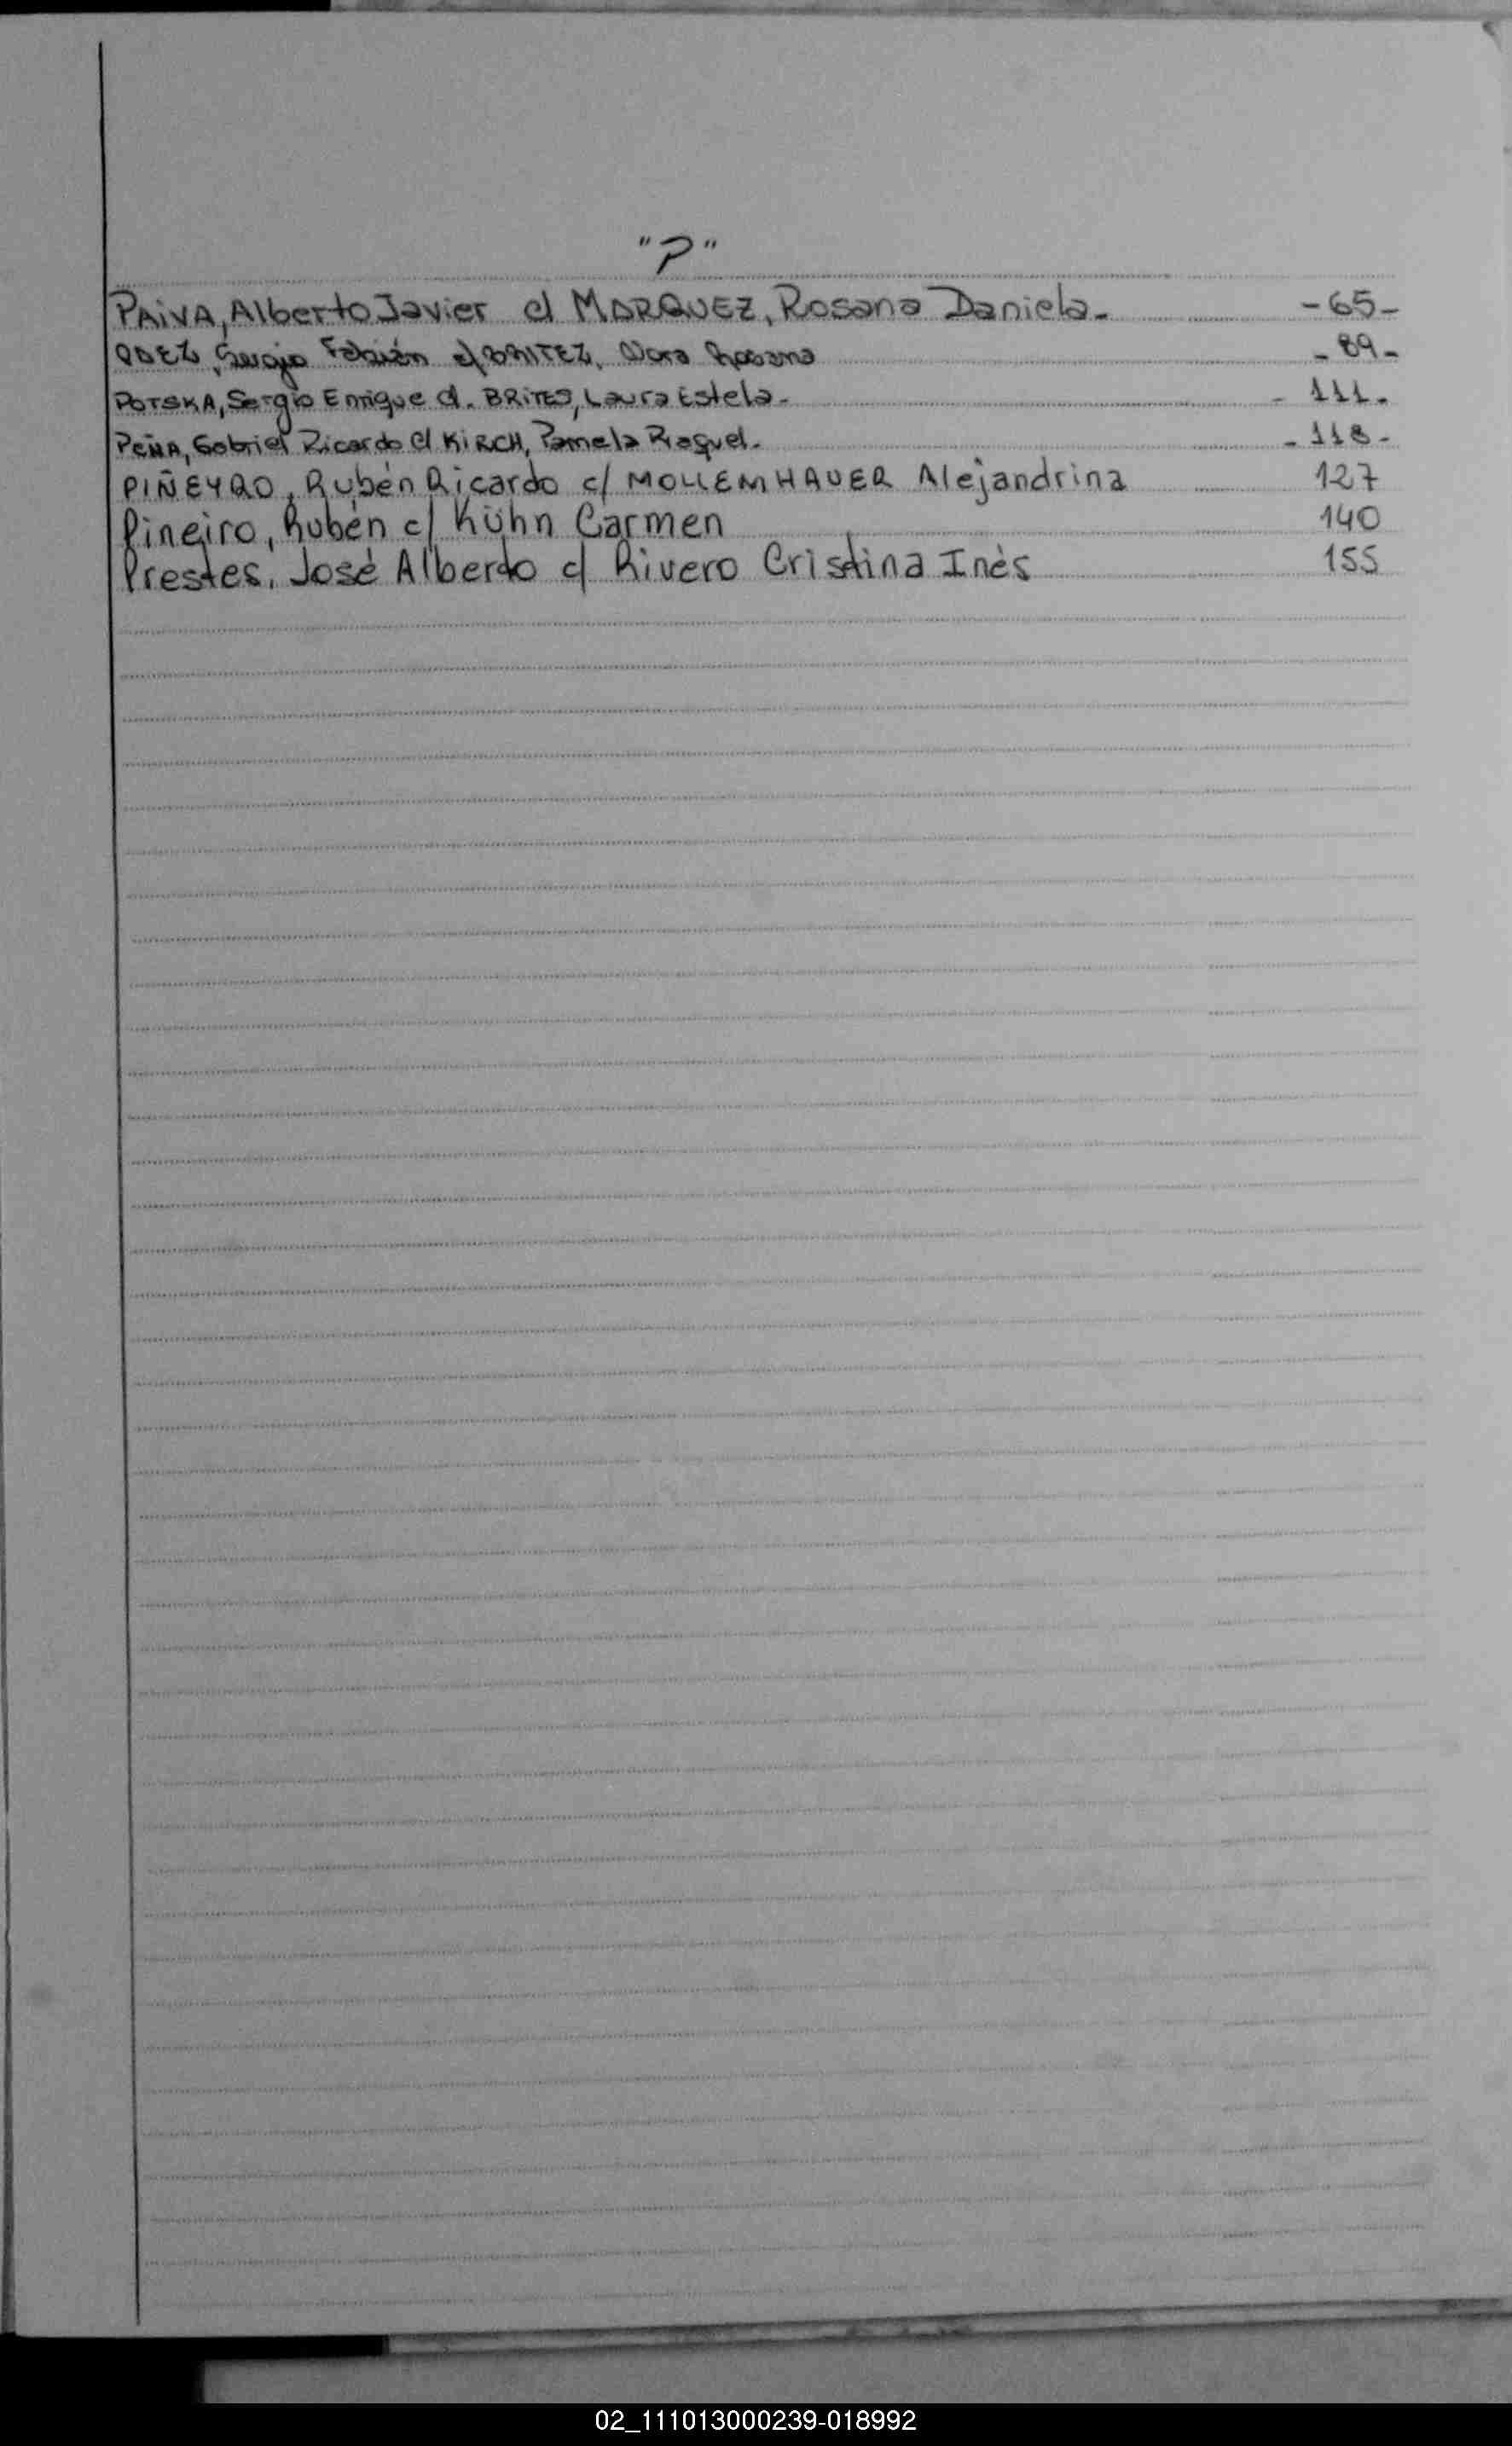 "P"
PAIVA, Alberto Javier c/ MARQUEZ, Rosana Daniela. -65-
Sergio Fabián c/ Nora Rosana - 89 -
POTSKA, Sergio Enrique c/. BRITES, Laura Estela. - 111.
PEÑA, Gabriel Ricardo c/ KIRCH, Pamela Raquel. - 118 -
PIÑEYRO, Rubén Ricardo c/ MOLLEMHAUER Alejandrina 127
Pineiro, Rubén c/ Kühn Carmen 140
Prestes, José Alberto c/ Rivero Cristina Inès 155
02_111013000239-018992